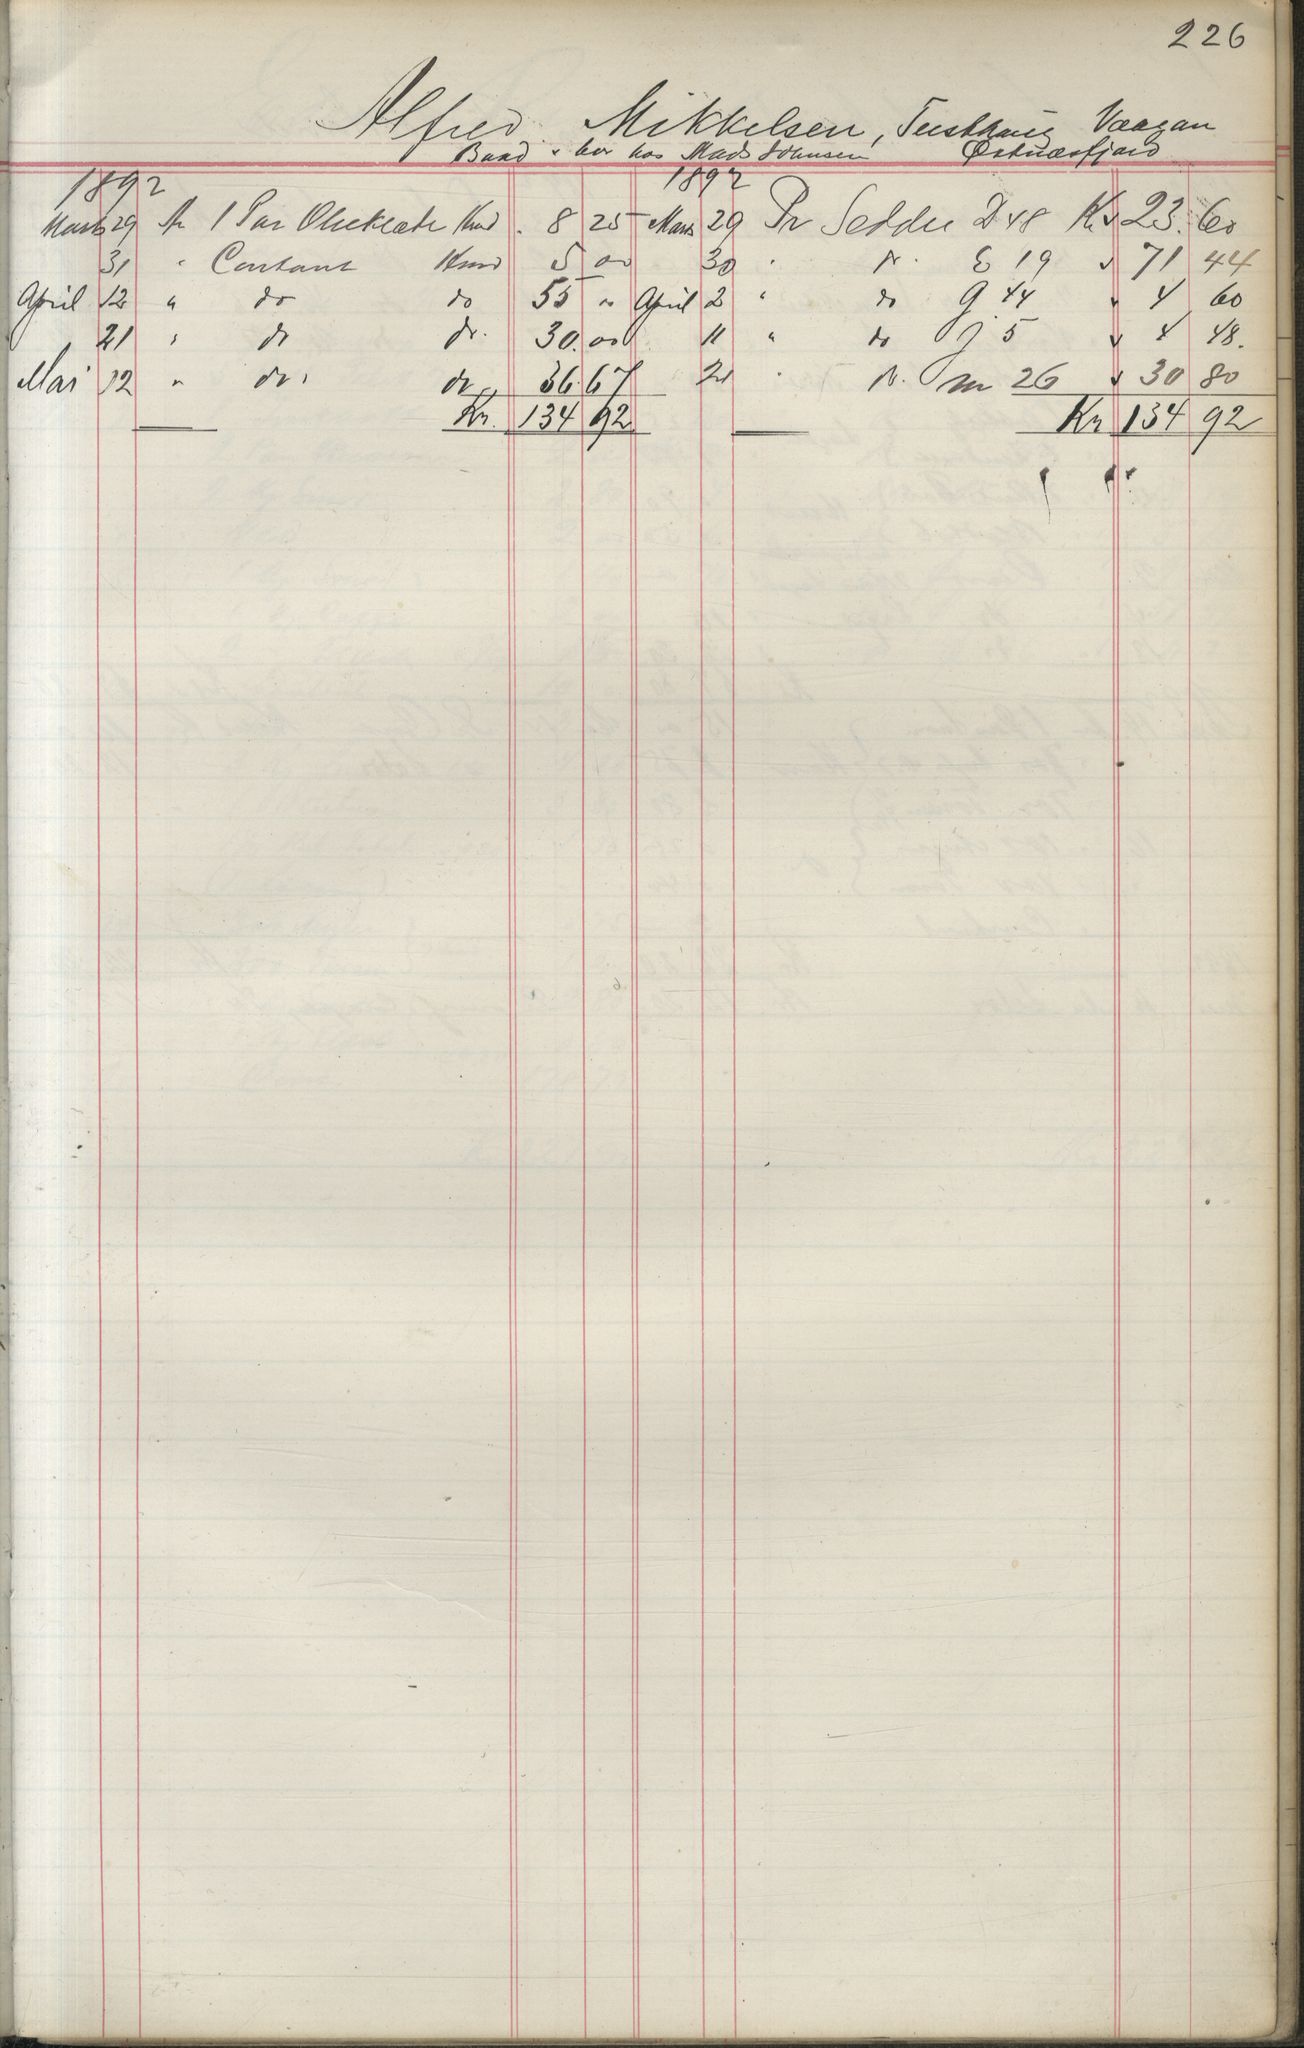 226
Alfred Mikkelsen, Vaagan
Baad " bor hos Mads Johnsen Østnæsfjord
1892 1892
Marts 29 An 1 Par Knud 8 25 Mars 29 Pr Seddel D 48 Kr 23.60
31 " Contant Knud 5 00 30 " do. E 19 " 71 44
April 12 " do do 55 " April 2 " do G 44 " 4 60
21 " do do. 30.00 11 " do J 5 " 4 48.
Mai 12 " do. do 36.67 21 " do. M 26 " 30 80
Kr. 134 92 Kr 134 92